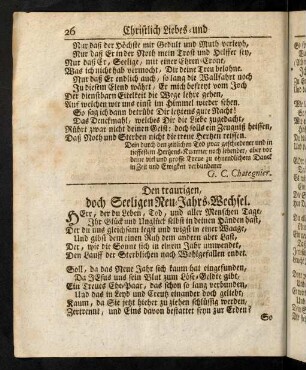 26 Christlich Liebes- und
Nur daß der Höchste mir Gedult und Muth verleyh,
Nur daß Er in der Noth mein Trost und Helffer sey,
Nur daß Er, Seelige, mit einer Ehren-Crone,
Was ich nicht hab vermocht, Dir deine Treu belohne.
Nur daß Er endlich auch, so lang die Wallfahrt noch
Zu diesem Elend währt, Er mich befreyt vom Joch
Der dienstbarn Eitelkeit die Wege lehre gehen,
Auf welchen wir uns einst im Himmel wieder sehen.
So sag ich dann betrübt Die letztens gute Nacht!
Das Denckmahl, welches Dir die Liebe zugedacht,
Rührt zwar nicht deinen Geist; doch soll es Zeugniß heissen,
Daß Noth und Sterben nicht die treue Hertzen reissen.
Dein durch den zeitlichen Tod zwar geschiedener und in
tieffesten Hertzens-Kummer noch lebender, aber vor
deine viel und grosse Treue zu ehrendlichem Danck
in Zeit und Ewigkeit verbundener
G. C. Chategnier.
Den traurigen,
doch Seeligen Neu-Jahrs-Wechsel.
HErr, der du Leben, Tod, und aller Menschen Tage,
Ihr Glück und Unglück selbst in deinen Händen hast,
Der du uns gleichsam legst und wigst in einer Waage,
Und gibst dem einen Ruh dem andern aber Last,
Der, wie die Sonne sich in einem Jahr umwendet,
Den Lauff der Sterblichen nach Wohlgefallen endet.
Soll, da das Neue Jahr sich kaum hat eingefunden,
Da JEsus uns sein Blut zum Löse-Gelde gibt,
Ein Treues Ehe-Paar, das schon so lang verbunden,
Und das in Leyd und Creutz einander doch geliebt,
Kaum, da Sie jetzt hieher zu ziehen schlüssig werden,
Zertrennt, und Eins davon bestattet seyn zur Erden?
So